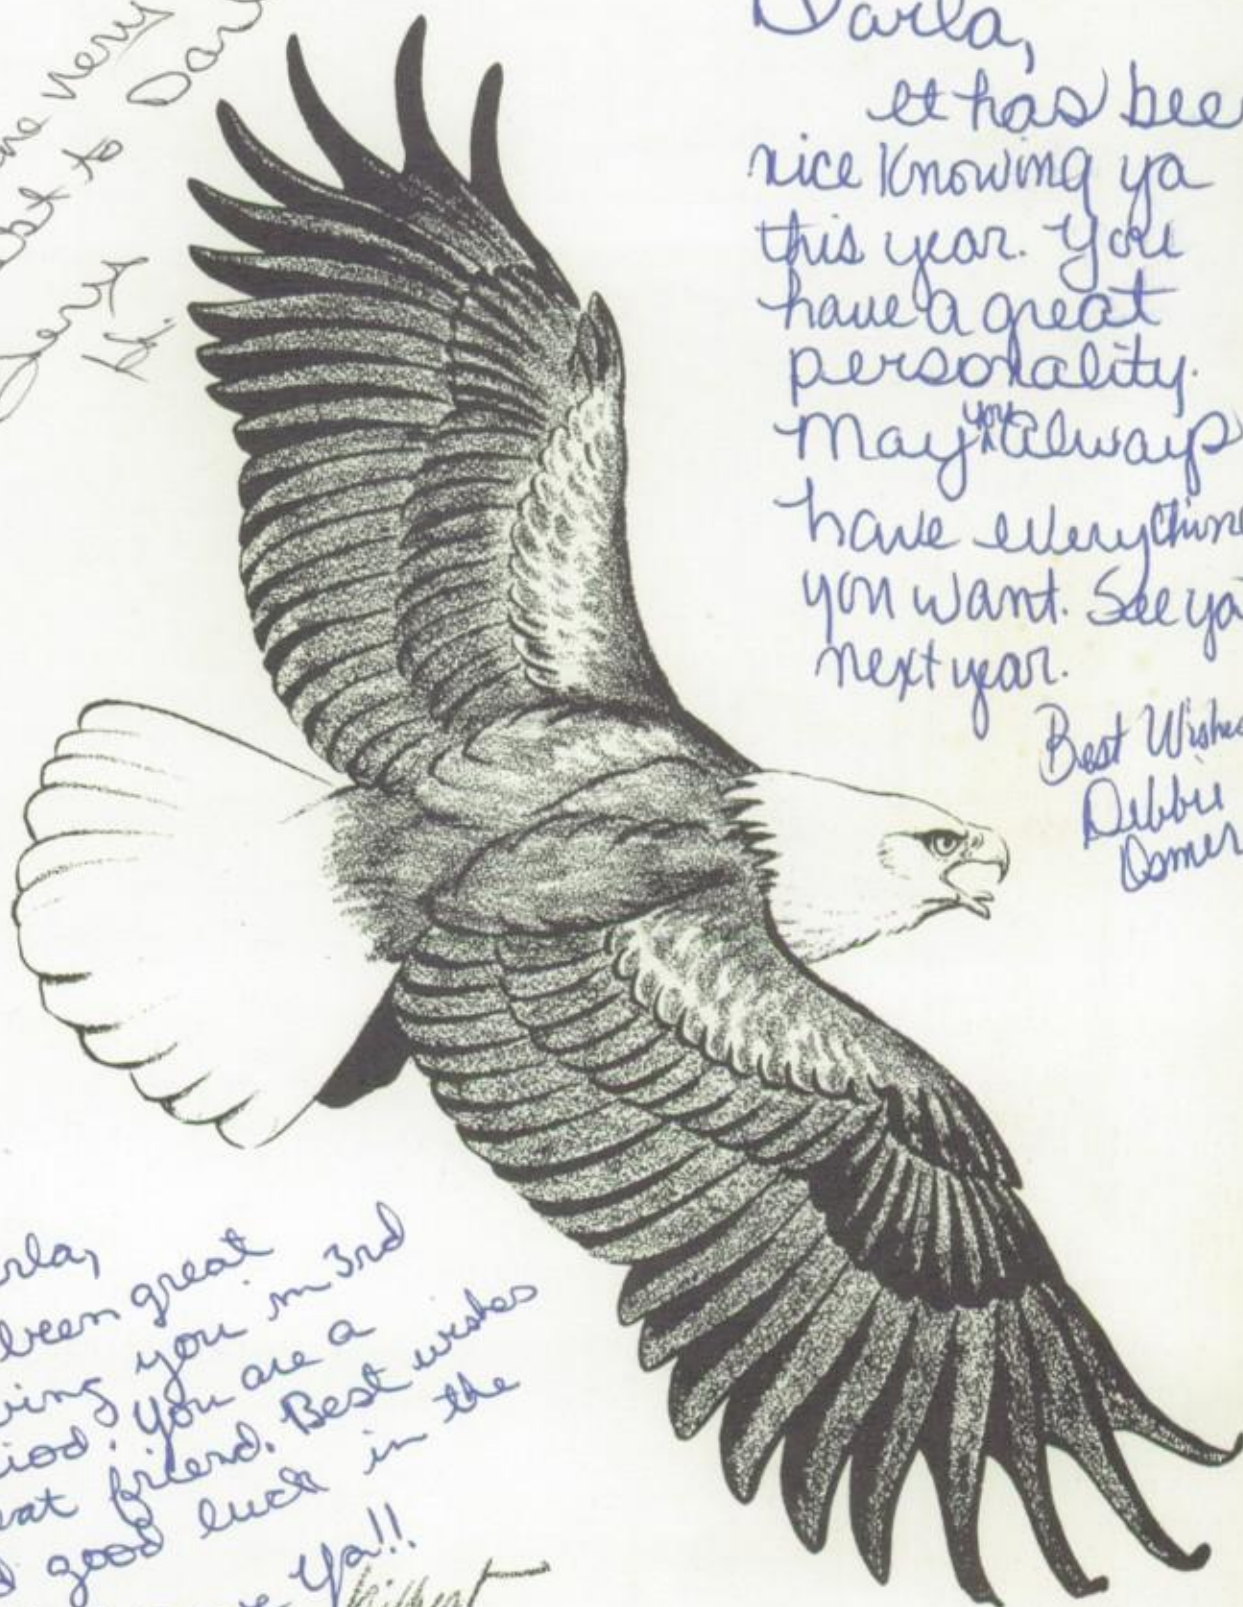 very
to Dar
Jerry
H.
Darla,
It has bee
nice knowing ya
this year. You
have a great
personality.
May you always
have everything
you want. See ya
next year.
Best Wishes
Debbie
Osmer
rla,
been great
ving you in 3rd
iod. You are a
eat friend. Best wishes
d good luck in the
Ya!!